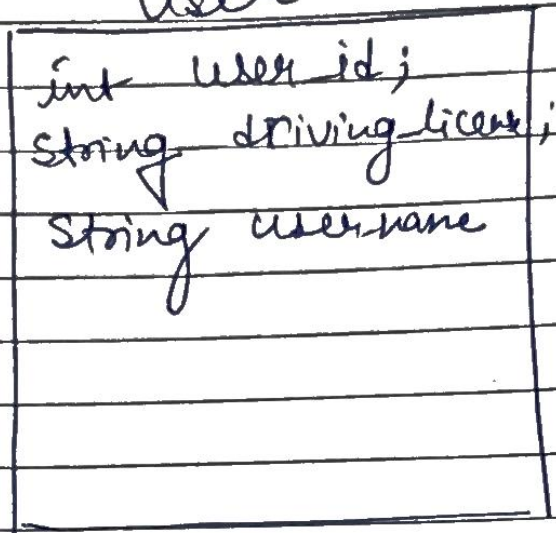 User
int user_id;
string driving_license;
string username